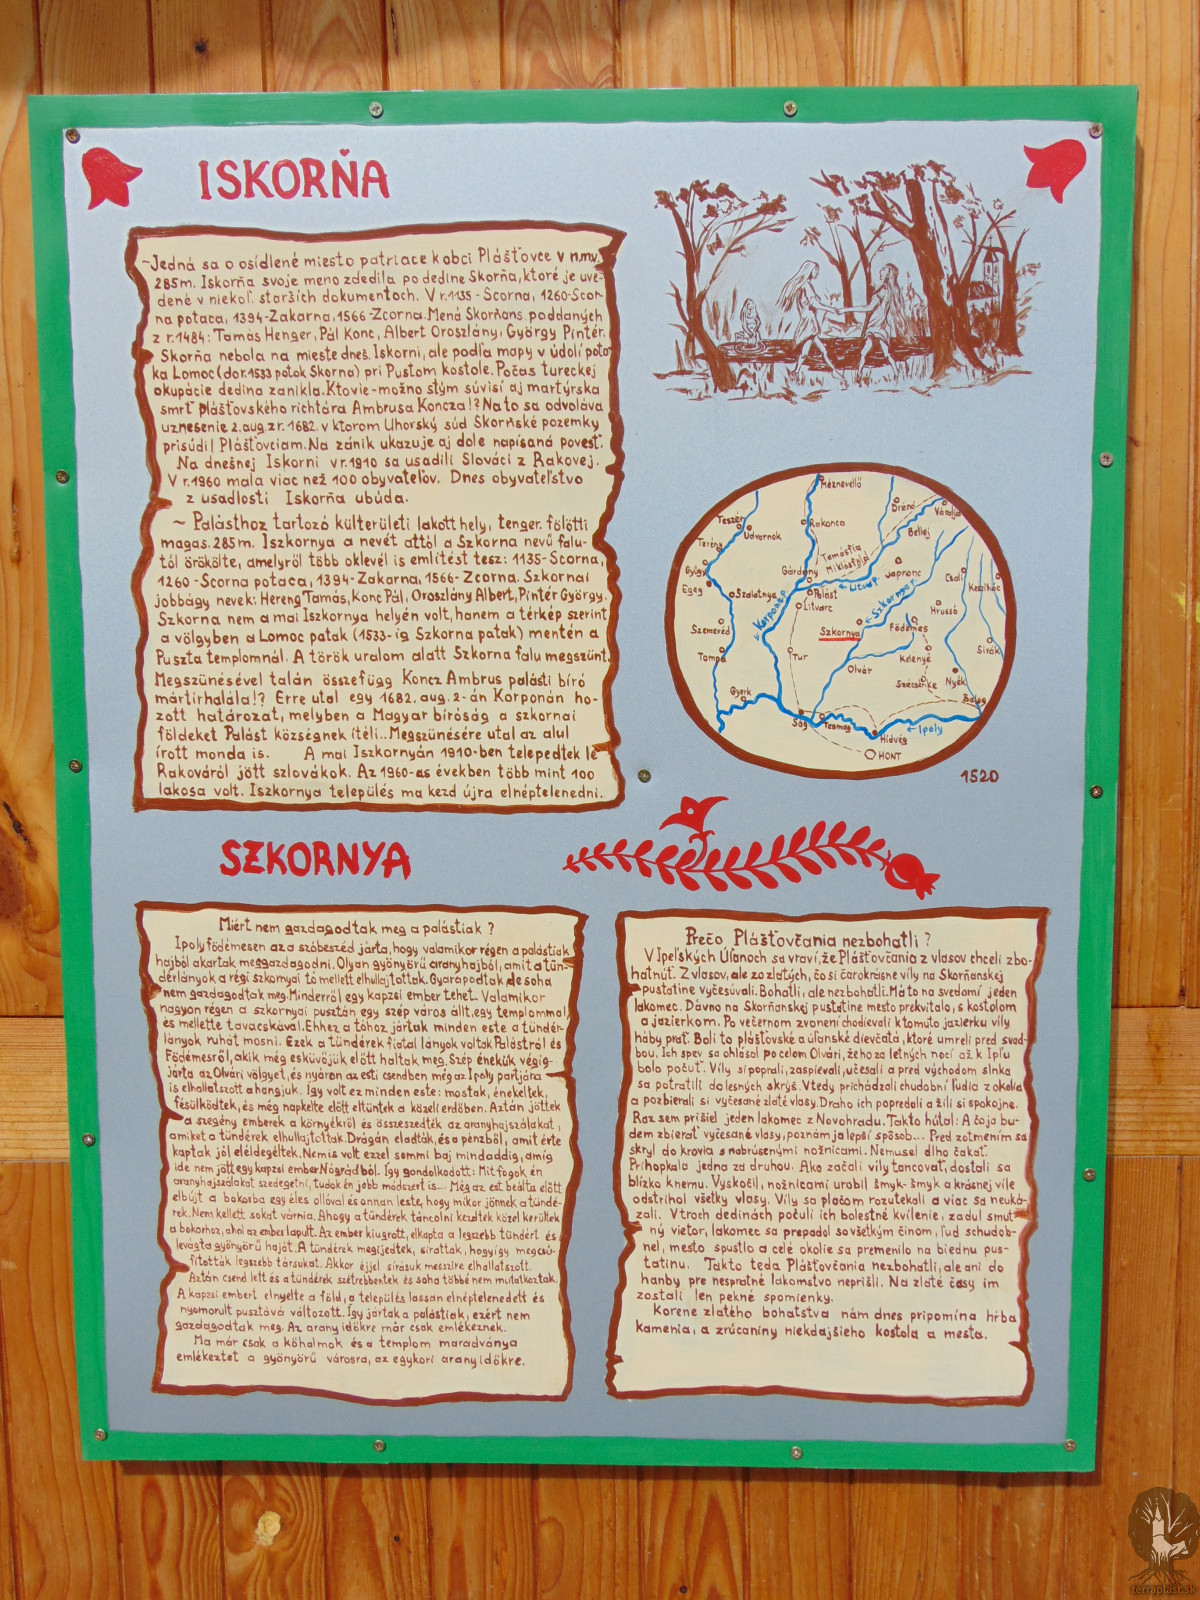 ISKORŇA
~Jedná sa o osídlené miesto patriace k obci Plášťovce v n.m.v.
285m. Iskorňa svoje meno zdedila po dedine Skorňa, ktoré je uve-
dené v niekoľ. starších dokumentoch. V r.1135-Scorna, 1260-Scor-
na potaca, 1394-Zakarna, 1566-Zcorna. Mená Skorňans. poddaných
z r.1484: Tamás Henger, Pál Konc, Albert Oroszlány, György Pintér.
Skorňa nebola na mieste dneš. Iskorni, ale podľa mapy v údolí poto-
ka Lomoc (do r.1533 potok Skorna) pri Pustom kostole. Počas tureckej
okupácie dedina zanikla. Ktovie-možno s tým súvisí aj martýrska
smrť plášťovského richtára Ambrusa Koncza!? Na to sa odvoláva
uznesenie 2. aug. z r. 1682. v ktorom Uhorský súd Skorňské pozemky
prisúdil Plášťovciam. Na zánik ukazuje aj dole napísaná povesť.
Na dnešnej Iskorni v r.1910 sa usadili Slováci z Rakovej.
V r.1960 mala viac než 100 obyvateľov. Dnes obyvateľstvo
z usadlosti Iskorňa ubúda.
~ Palásthoz tartozó külterületi lakott hely, tenger. fölötti
magas. 285m. Iszkornya a nevét attól a Szkorna nevű falu-
tól örökölte, amelyről több oklevél is említést tesz: 1135-Scorna,
1260-Scorna potaca, 1394-Zakarna, 1566-Zcorna. Szkornai
jobbágy nevek: Hereng Tamás, Konc Pál, Oroszlány Albert, Pintér György.
Szkorna nem a mai Iszkornya helyén volt, hanem a térkép szerint
a völgyben a Lomoc patak (1533-ig Szkorna patak) mentén a
Puszta templomnál. A török uralom alatt Szkorna falu megszűnt.
Megszűnésével talán összefügg Koncz Ambrus palásti bíró
mártírhalála!? Erre utal egy 1682. aug. 2-án Korponán ho-
zott határozat, melyben a Magyar bíróság a szkornai
földeket Palást községnek ítéli... Megszűnésére utal az alul
írott monda is. A mai Iszkornyán 1910-ben telepedtek le
Rakováról jött szlovákok. Az 1960-as években több mint 100
lakosa volt. Iszkornya település ma kezd újra elnéptelenedni.
Méznevelő
Teszér
Udvarnok
Rakonca
Drénó
Váralja
Bellej
Terény
Tamásfia
Miklósfalvi
György
Gárdony
Litvap.
Japronc
Csali
Keszihóc
Egeg
Szalatnya
Palást
Litvarc
Korponap.
Szkornyap.
Hrussó
Szemeréd
Szkornya
Födémes
Sirák
Tompa
Tur
Kelenye
Olvár
Szécsénke
Nyék
Gyerk
Balog
Ság
Tesmag
Hidvég
Ipoly
HONT
1520
SZKORNYA
Miért nem gazdagodtak meg a palástiak ?
Ipolyfödémesen az a szóbeszéd járta, hogy valamikor régen a palástiak
hajból akartak meggazdagodni. Olyan gyönyörű aranyhajból, amit a tün-
dérlányok a régi szkornyai tó mellett elhullajtottak. Gyarapodtak, de soha
nem gazdagodtak meg. Minderről egy kapzsi ember tehet. Valamikor
nagyon régen a szkornyai pusztán egy szép város állt, egy templommal
és mellette tavacskával. Ehhez a tóhoz jártak minden este a tündér-
lányok ruhát mosni. Ezek a tündérek fiatal lányok voltak Palástról és
Födémesről, akik még esküvőjük előtt haltak meg. Szép énekük végig-
járta az Olvári völgyet, és nyáron az esti csendben még az Ipoly partjára
is elhallatszott a hangjuk. Így volt ez minden este: mostak, énekeltek,
fésülködtek, és még napkelte előtt eltűntek a közeli erdőben. Aztán jöttek
a szegény emberek a környékről és összeszedték az aranyhajszálakat,
amiket a tündérek elhullajtottak. Drágán eladták, és a pénzből, amit érte
kaptak jól éldegéltek. Nem is volt ezzel semmi baj mindaddig, amíg
ide nem jött egy kapzsi ember Nógrádból. Így gondolkodott: Mit fogok én
aranyhajszálakat szedegetni, tudok én jobb módszert is... Még az est beálta előtt
elbújt a bokorba egy éles ollóval és onnan leste, hogy mikor jönnek a tündé-
rek. Nem kellett sokat várnia. Ahogy a tündérek táncolni kezdtek közel kerültek
a bokorhoz, ahol az ember lapult. Az ember kiugrott, elkapta a legszebb tündért és
levágta gyönyörű haját. A tündérek megijedtek, sírattak, hogy így megcsú-
fították legszebb társukat. Akkor éjjel sírásuk messzire elhallatszott.
Aztán csend lett és a tündérek szétrebbentek és soha többé nem mutatkoztak.
A kapzsi embert elnyelte a föld, a település lassan elnéptelenedett és
nyomorult pusztává változott. Így jártak a palástiak, ezért nem
gazdagodtak meg. Az arany időkre már csak emlékeznek.
Ma már csak a kőhalmok és a templom maradványa
emlékeztet a gyönyörű városra, az egykori arany időkre.
Prečo Plášťovčania nezbohatli ?
V Ipeľských Úľanoch sa vraví, že Plášťovčania z vlasov chceli zbo-
hatnúť. Z vlasov, ale zo zlatých, čo si čarokrásne víly na Skorňanskej
pustatine vyčesúvali. Bohatli, ale nezbohatli. Má to na svedomí jeden
lakomec. Dávno na Skorňanskej pustatine mesto prekvitalo, s kostolom
a jazierkom. Po večernom zvonení chodievali k tomuto jazierku víly
háby prať. Boli to plášťovské a úľanské dievčatá, ktoré umreli pred svad-
bou. Ich spev sa ohlásal po celom Olvári, že ho za letných nocí až k Ipľu
bolo počuť. Víly si poprali, zaspievali, učesali a pred východom slnka
sa potratili do lesných skrýš. Vtedy prichádzali chudobní ľudia z okolia
a pozbierali si vyčesané zlaté vlasy. Draho ich popredali a žili si spokojne.
Raz sem prišiel jeden lakomec z Novohradu. Takto hútal: A čo ja bu-
dem zbierať vyčesané vlasy, poznám ja lepší spôsob... Pred zotmením sa
skryl do krovia s nabrúsenými nožnicami. Nemusel dlho čakať.
Prihopkala jedna za druhou. Ako začali víly tancovať, dostali sa
blízko k nemu. Vyskočil, nožnicami urobil šmyk-šmyk a krásnej víle
odstrihol všetky vlasy. Víly sa s plačom rozutekali a viac sa neuká-
zali. V troch dedinách počuli ich bolestné kvílenie, zadul smut-
ný vietor, lakomec sa prepadol so všetkým činom, ľud schudob-
nel, mesto spustlo a celé okolie sa premenilo na biednu pus-
tatinu. Takto teda Plášťovčania nezbohatli, ale ani do
hanby pre nespratné lakomstvo neprišli. Na zlaté časy im
zostali len pekné spomienky.
Korene zlatého bohatstva nám dnes pripomína hŕba
kamenia, a zrúcaniny niekdajšieho kostola a mesta.
terraplast.sk